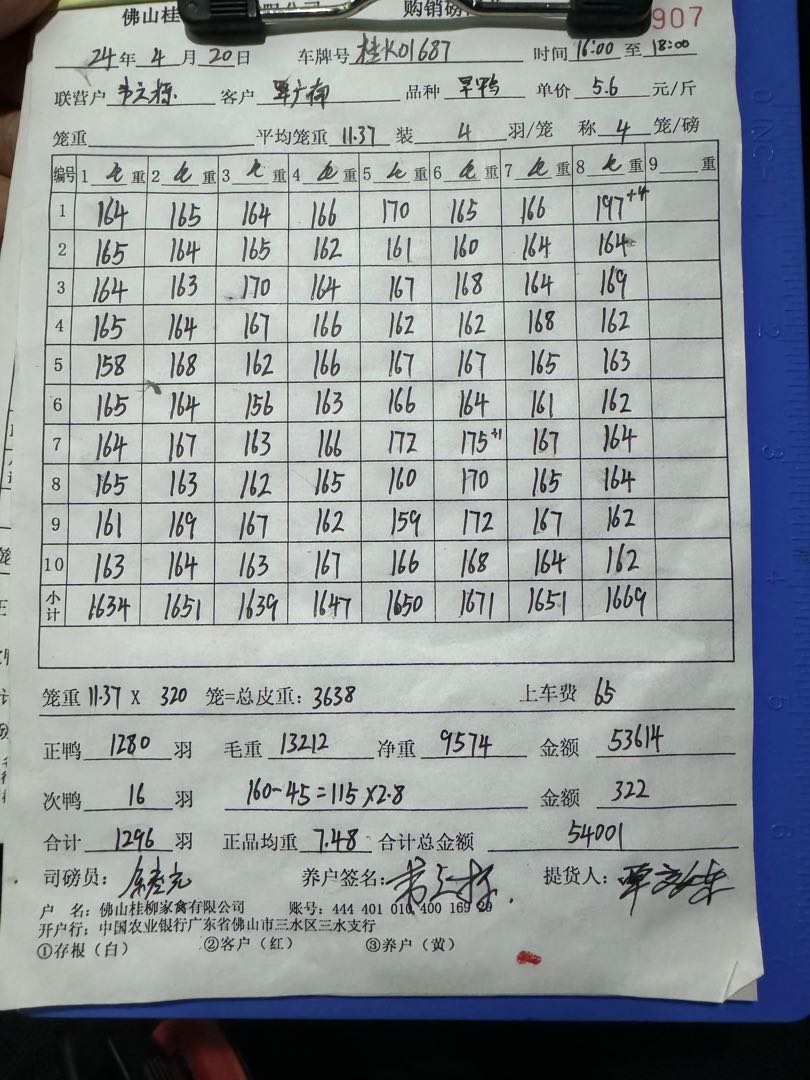 佛山桂 有限公司 购销磅
907
24年4月20日 车牌号 桂K01687 时间 16:00 至 18:00
联营户 韦立栋 客户 覃广 品种 旱鸭 单价 5.6 元/斤
笼重 平均笼重 11.37 装 4 羽/笼 称 4 笼/磅
编号 1 毛 重 2 毛 重 3 毛 重 4 毛 重 5 毛 重 6 毛 重 7 毛 重 8 毛 重 9 重
1 164 165 164 166 170 165 166 197+4
2 165 164 165 162 161 160 164 164
3 164 163 170 164 167 168 164 169
4 165 164 167 166 162 162 168 162
5 158 168 162 166 167 167 165 163
6 165 164 156 163 166 164 161 162
7 164 167 163 166 172 175+1 167 164
8 165 163 162 165 160 170 165 164
9 161 169 167 162 159 172 167 162
10 163 164 163 167 166 168 164 162
小计 1634 1651 1639 1647 1650 1671 1651 1669
笼重 11.37 X 320 笼=总皮重: 3638 上车费 65
正鸭 1280 羽 毛重 13212 净重 9574 金额 53614
次鸭 16 羽 160-45=115×2.8 金额 322
合计 1296 羽 正品均重 7.48 合计总金额 54001
司磅员: 养户签名: 韦立栋. 提货人:
户 名: 佛山桂柳家禽有限公司 账号: 444 401 010 400 169 29
开户行: 中国农业银行广东省佛山市三水区三水支行
①存根(白) ②客户(红) ③养户(黄)